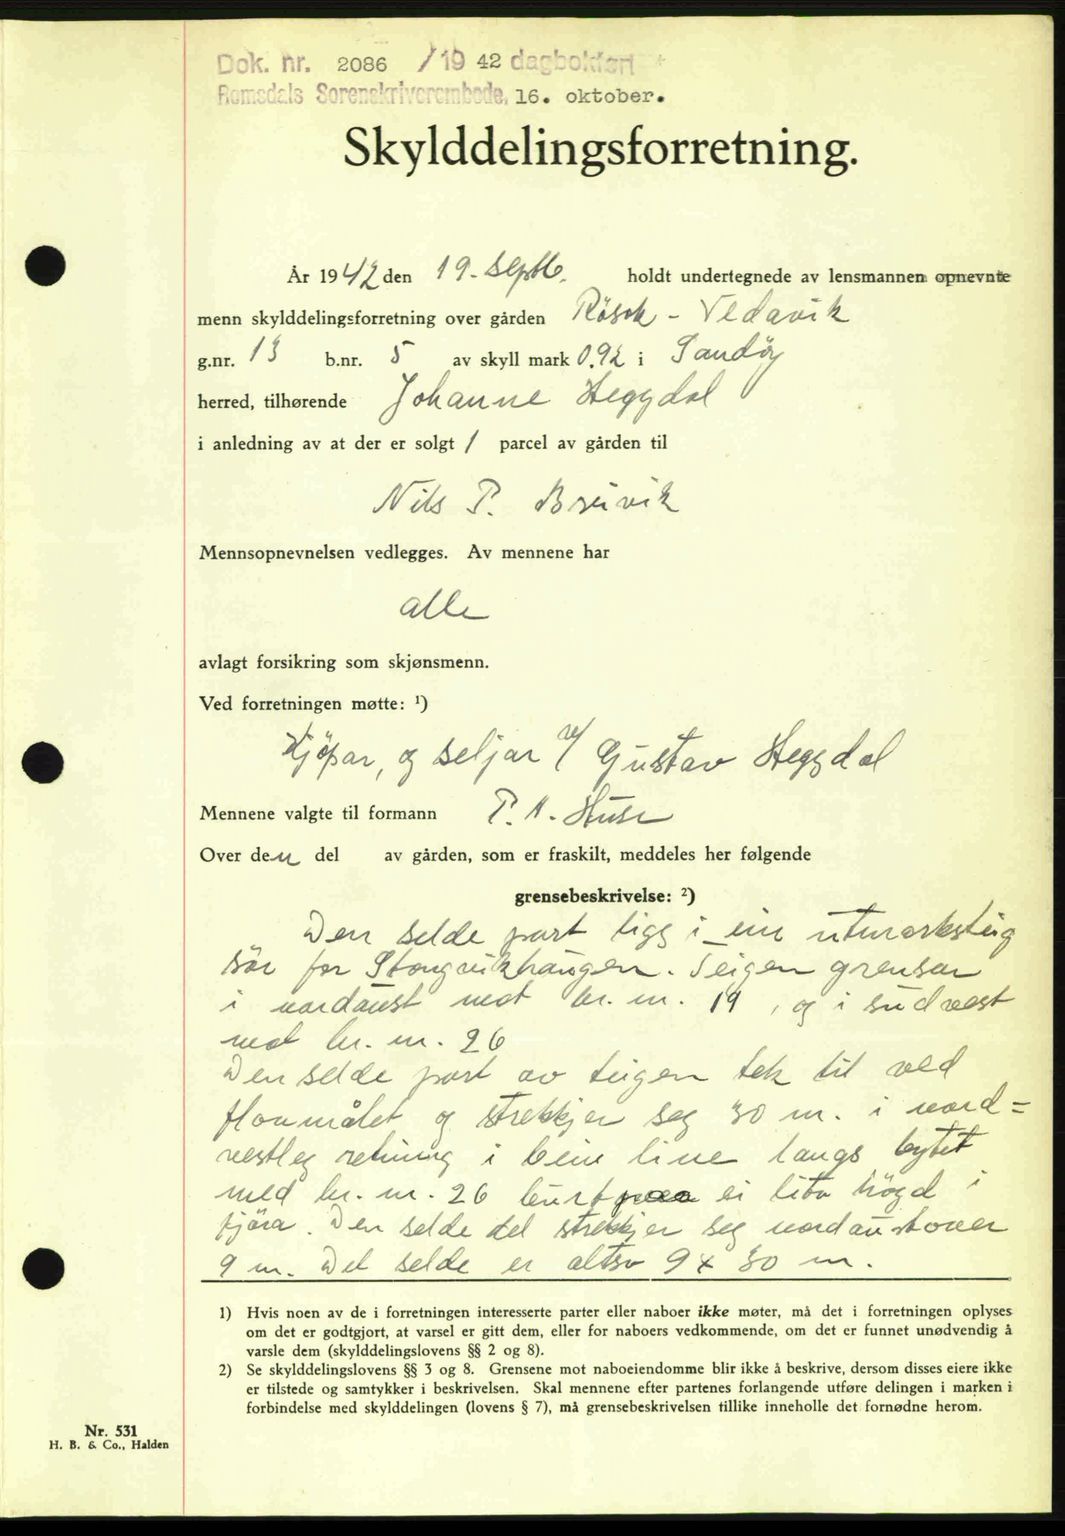 Dok. nr. 2086 /19 42 dagbokført
Romsdals Sorenskriverembede, 16. oktober.
Skylddelingsforretning.
År 1942 den 19. septb. holdt undertegnede av lensmannen opnevnte
menn skylddelingsforretning over gården Røsok - Vedavik
g.nr. 13 b.nr. 5 av skyll mark 0.92 i Sandøy
herred, tilhørende Johanne Heggdal
i anledning av at der er solgt 1 parcel av gården til
Nils P. Breivik
Mennsopnevnelsen vedlegges. Av mennene har
alle
avlagt forsikring som skjønsmenn.
Ved forretningen møtte: ¹)
Kjöpar, og seljar v/ Gustav Heggdal
Mennene valgte til formann P. A. Huse
Over den del av gården, som er fraskilt, meddeles her følgende
grensebeskrivelse: ²)
Den selde part ligg i ein utmarksteig
sör for Stongvikhaugen. Teigen grensar
i nordaust mot br. nr. 19, og i sudvest
mot br. nr. 26
Den selde part av teigen tek til ved
floumålet og strekkjer seg 30 m. i nord=
vestleg retning i bein line langs bytet
med br. nr. 26 burt ei lita högd i
fjöra. Den selde del strekkjer seg nordaustover
9 m. Det selde er altso 9 x 30 m.
1) Hvis noen av de i forretningen interesserte parter eller naboer ikke møter, må det i forretningen oplyses
om det er godtgjort, at varsel er gitt dem, eller for naboers vedkommende, om det er funnet unødvendig å
varsle dem (skylddelingslovens §§ 2 og 8).
2) Se skylddelingslovens §§ 3 og 8. Grensene mot naboeiendomme blir ikke å beskrive, dersom disses eiere ikke
er tilstede og samtykker i beskrivelsen. Skal mennene efter partenes forlangende utføre delingen i marken i
forbindelse med skylddelingen (lovens § 7), må grensebeskrivelsen tillike inneholle det fornødne herom.
Nr. 531
H. B. & Co., Halden